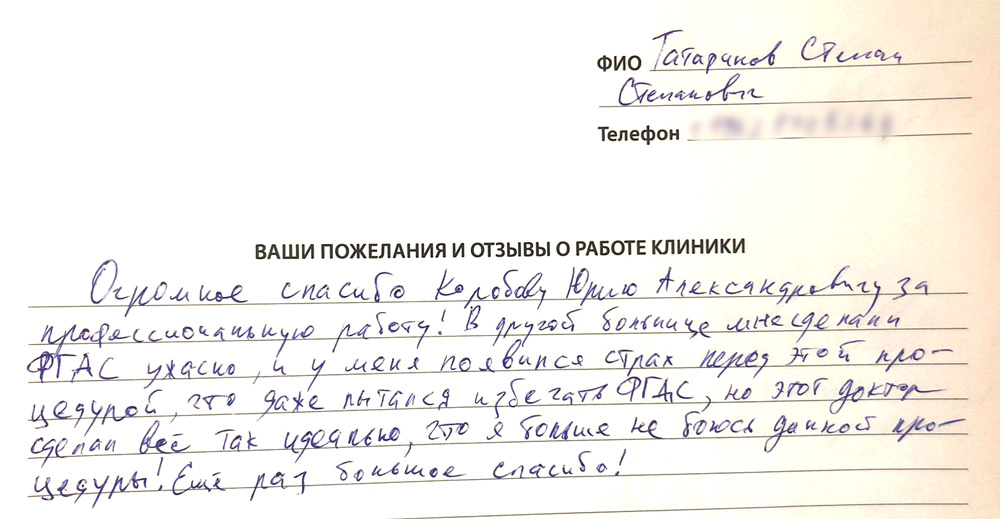 ФИО Татаринов Степан
Степанович
Телефон
ВАШИ ПОЖЕЛАНИЯ И ОТЗЫВЫ О РАБОТЕ КЛИНИКИ
Огромное спасибо Коробову Юрию Александровичу за
профессиональную работу! В другой больнице мне сделали
ФГДС ужасно, и у меня появился страх перед этой про-
цедурой, что даже пытался избегать ФГДС, но этот доктор
сделал всё так идеально, что я больше не боюсь данной про-
цедуры! Ещё раз большое спасибо!